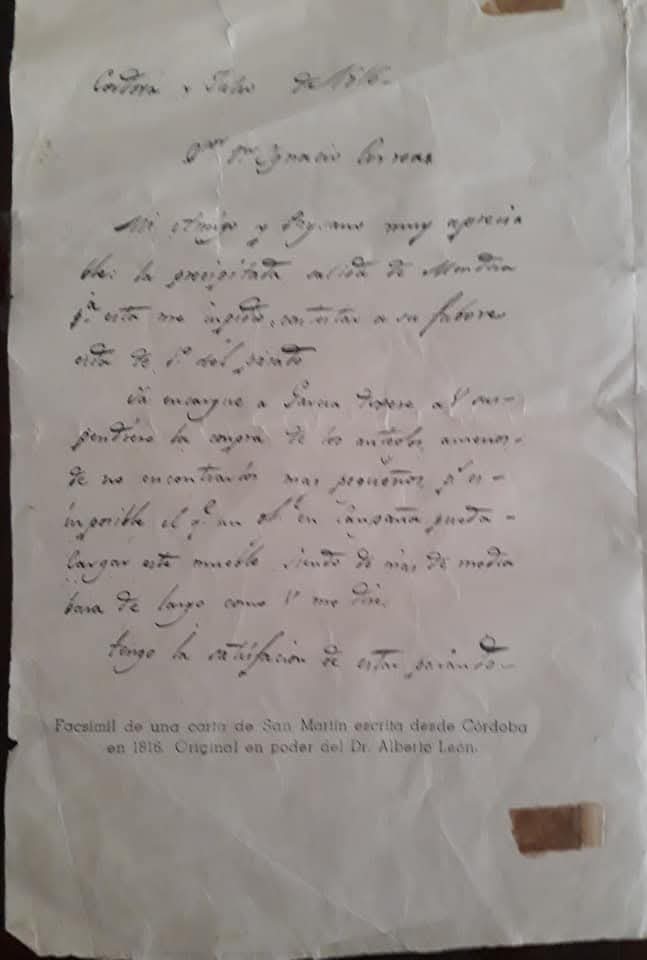 Cordova y Julio de 1816.
Sor Dn Ignacio Correas
Mi Amigo y Paysano muy aprecia
ble: la precipitada salida de Mendoza
pa esta me inpidio contestar a su fabore
cida de 1º del pasado
Ya encargue a Garcia dixese a V sus-
pendiese la conpra de los anteojos amenos
de no encontrarlos mas pequeños, ps es
inposible el qe un ofl en Canpaña pueda
Cargar este mueble siendo de mas de media
bara de largo como V me dise.
tengo la satisfacion de estar pasando
Facsimil de una carta de San Martín escrita desde Córdoba
en 1816. Original en poder del Dr. Alberto León.